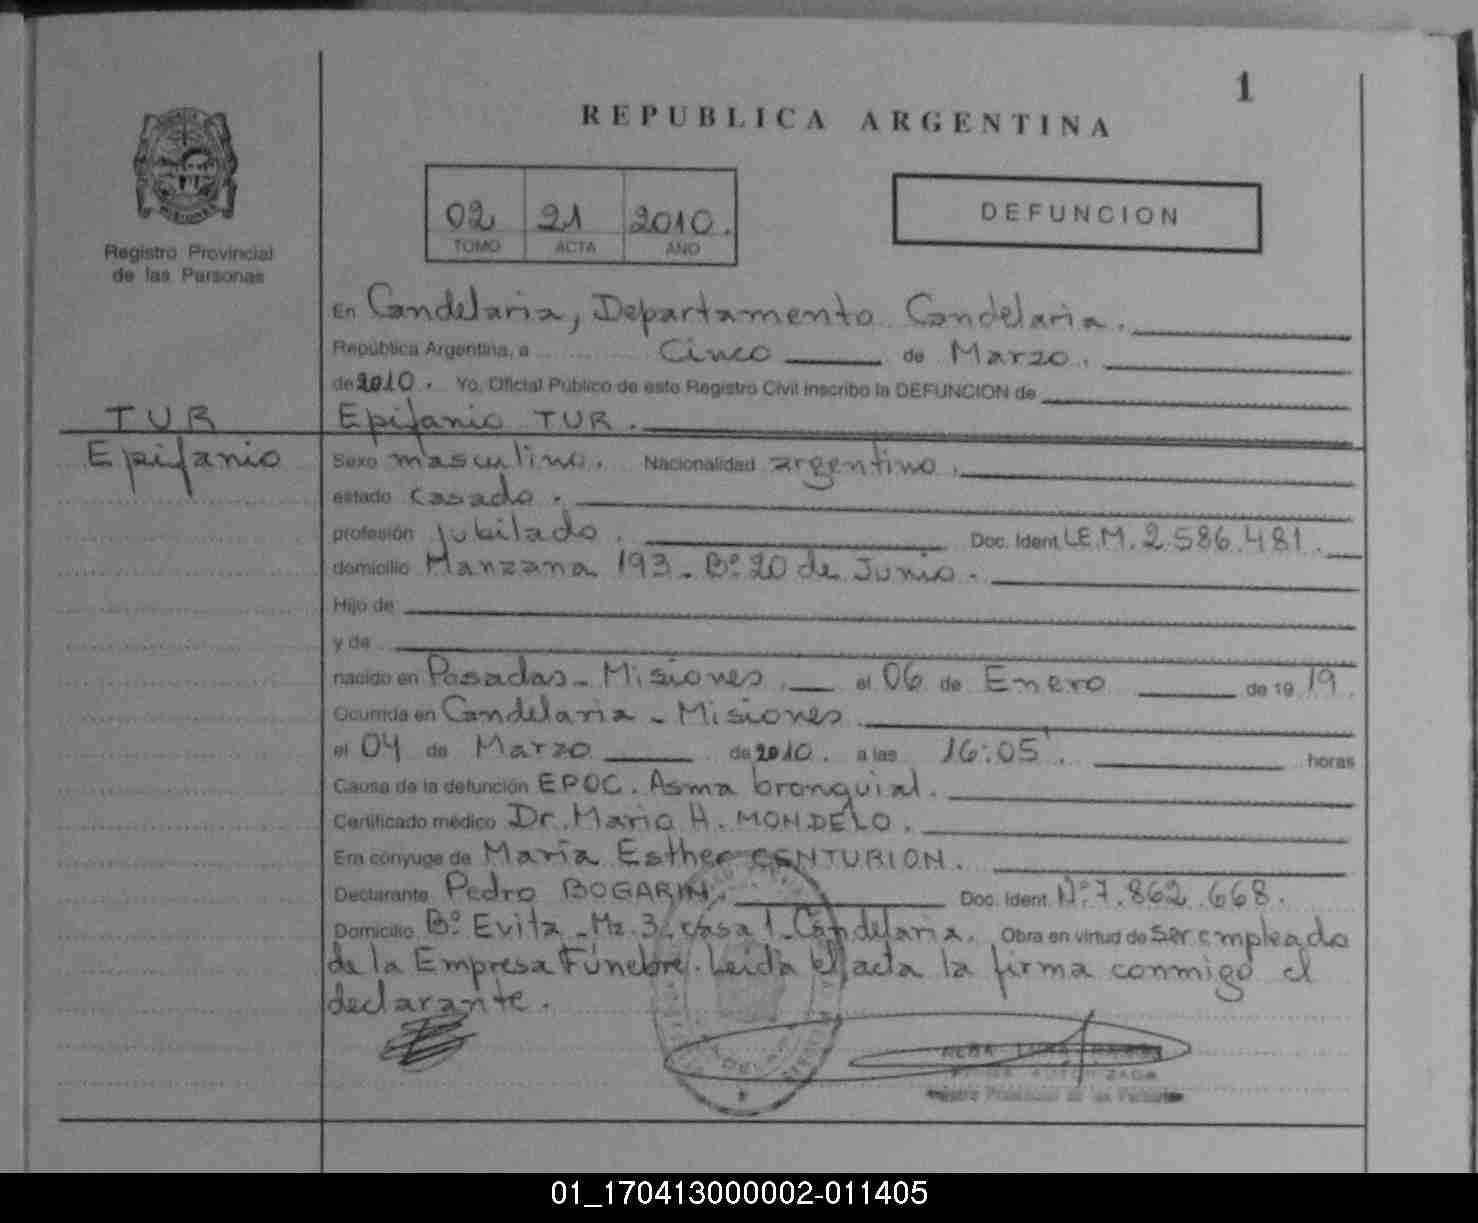 1
REPUBLICA ARGENTINA
02 21 2010.
TOMO ACTA AÑO
DEFUNCION
Registro Provincial
de las Personas
En Candelaria, Departamento Candelaria.
República Argentina, a Cinco de Marzo.
de 2010. Yo, Oficial Público de este Registro Civil inscribo la DEFUNCION de
TUR
Epifanio
Epifanio TUR.
Sexo masculino. Nacionalidad argentino.
estado casado.
profesión jubilado. Doc. Ident. L.E.M. 2.586.481.
domicilio Manzana 193. Bº 20 de Junio.
Hijo de
y de
nacido en Posadas - Misiones. el 06 de Enero de 19 19.
Ocurrida en Candelaria - Misiones.
el 04 de Marzo de 2010. a las 16:05'. horas
Causa de la defunción EPOC. Asma bronquial.
Certificado médico Dr. Mario H. MONDELO.
Era cónyuge de María Esther CENTURION.
Declarante Pedro BOGARIN. Doc. Ident. Nº 7.862.668.
Domicilio Bº Evita - Mz. 3. casa 1 - Candelaria. Obra en virtud de ser empleado
de la Empresa Fúnebre. Leída el acta la firma conmigo el
declarante.
FIRMA AUTORIZADA
Registro Provincial de las Personas
01_170413000002-011405